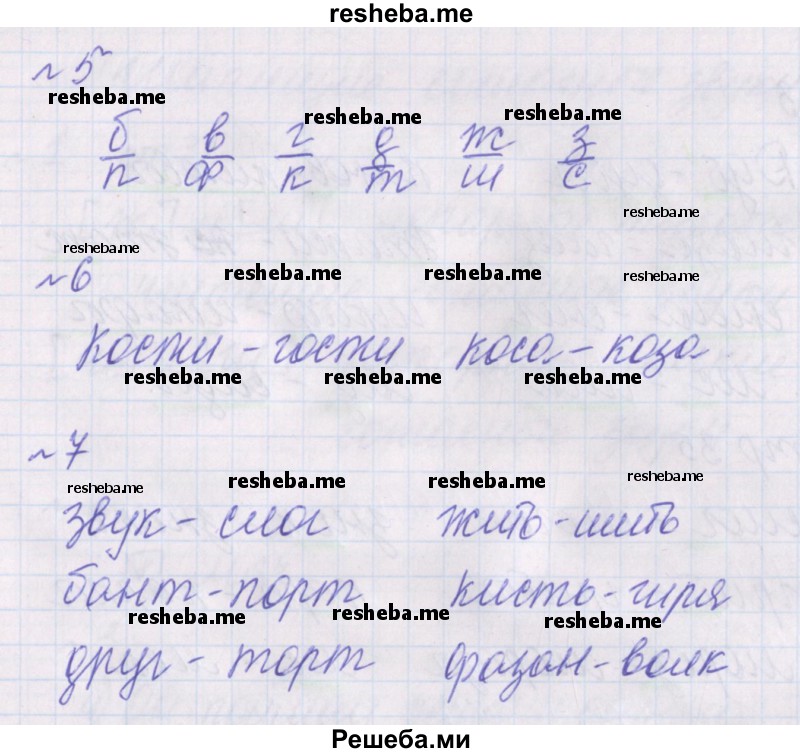 resheba.me
№ 5
resheba.me resheba.me resheba.me
б в г д ж з
п ф к т ш с
resheba.me
resheba.me
№ 6 resheba.me resheba.me resheba.me
Кости - гости коса - коза
resheba.me resheba.me resheba.me
№ 7
resheba.me resheba.me resheba.me resheba.me
звук - слог жить - шить
бант - порт кисть - гиря
resheba.me resheba.me resheba.me
друг - торт фазан - волк
Решеба.ми